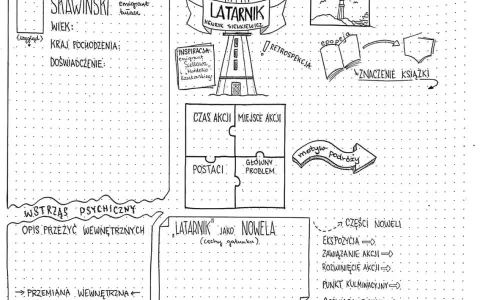 SKAWIŃSKI
emigrant
tułacz
(wygląd)
WIEK:
KRAJ POCHODZENIA:
DOŚWIADCZENIE:
LATARNIK
HENRYK SIENKIEWICZ
INSPIRACJA:
emigrant
RETROSPEKCJA
epopeja
ZNACZENIE KSIĄŻKI
CZAS AKCJI
MIEJSCE AKCJI
POSTACI
GŁÓWNY
PROBLEM
motyw podróży
WSTRZĄS PSYCHICZNY
OPIS PRZEŻYĆ WEWNĘTRZNYCH
PRZEMIANA WEWNĘTRZNA
„LATARNIK" JAKO NOWELA
(cechy gatunku)
CZĘŚCI NOWELI
EKSPOZYCJA
ZAWIĄZANIE AKCJI
ROZWINIĘCIE AKCJI
PUNKT KULMINACYJNY